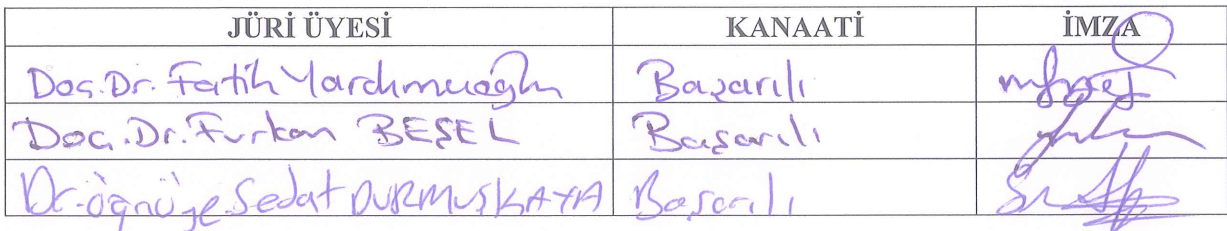 JÜRİ ÜYESİ KANAATİ İMZA
Doç.Dr. Fatih Yardımcıoğlu Başarılı
Doç.Dr. Furkan BEŞEL Başarılı
Dr. öğr üye. Sedat DURMUŞKAYA Başarılı